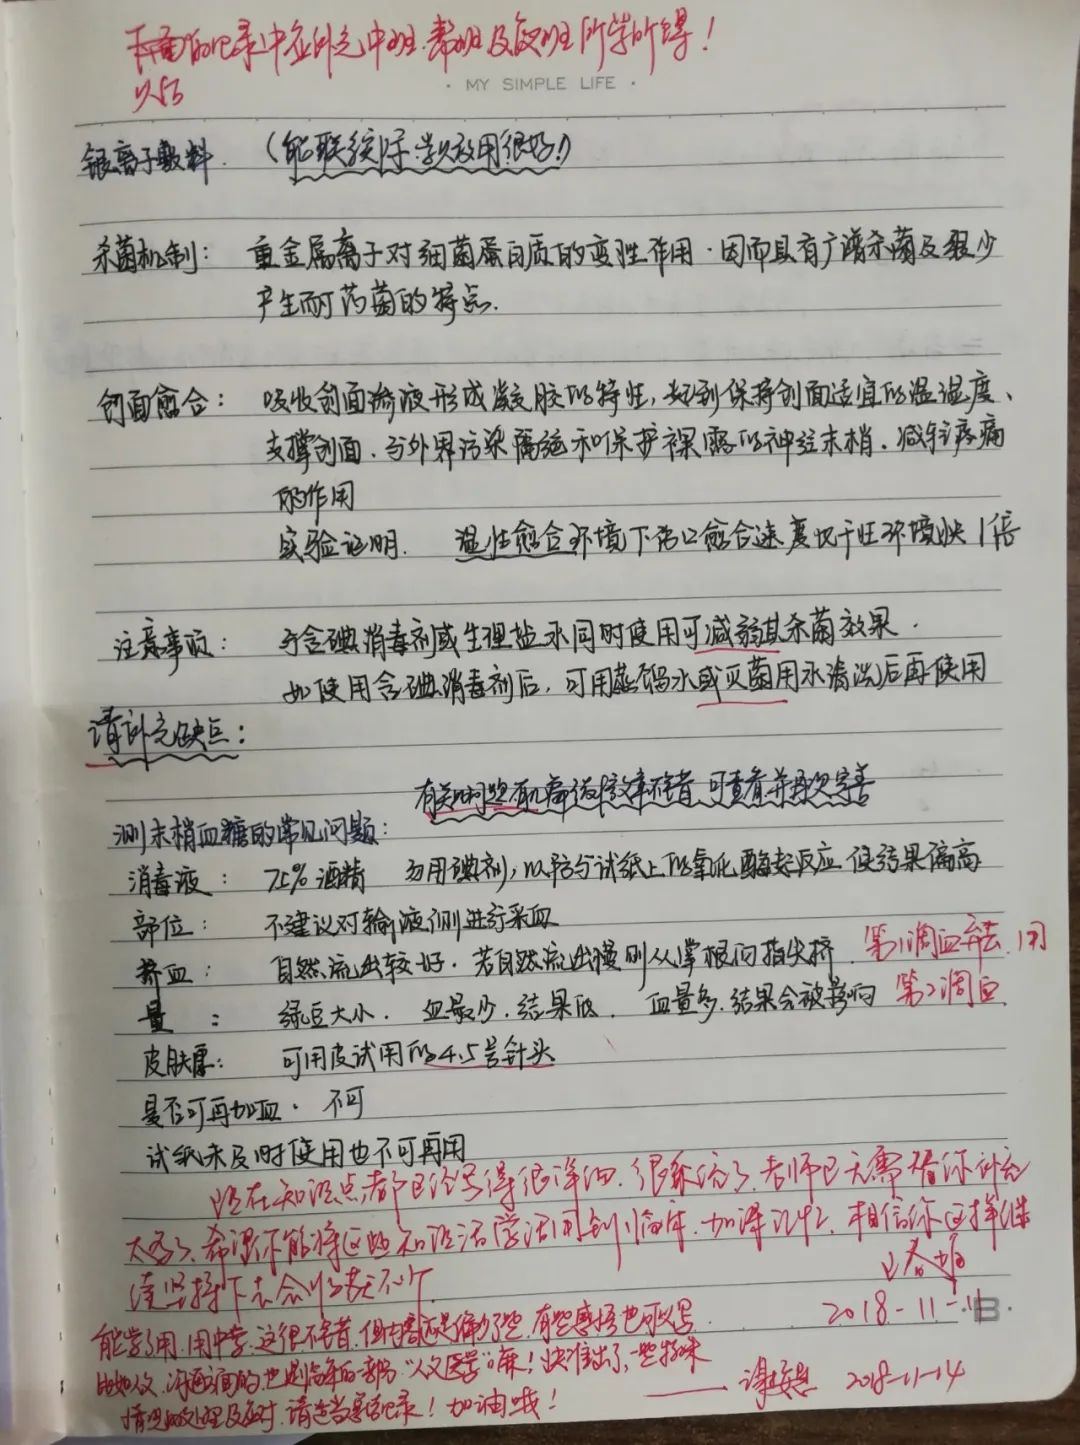 下面的记录中应补充中班、帮班及夜班所学所得!
以后
· MY SIMPLE LIFE ·
银离子敷料. (能联系实际.学以致用很好!)
杀菌机制: 重金属离子对细菌蛋白质的变性作用.因而具有广谱杀菌及很少
产生耐药菌的特点.
创面愈合: 吸收创面渗液形成凝胶的特性,起到保持创面适宜的温湿度、
支撑创面.与外界污染隔绝和保护裸露的神经末梢.减轻疼痛
的作用
实验证明. 湿性愈合环境下伤口愈合速度比干性环境快1倍
注意事项: 与含碘消毒剂或生理盐水同时使用可减弱其杀菌效果.
如使用含碘消毒剂后,可用蒸馏水或灭菌用水清洗后再使用
请补充缺点:
有关时可查看并再次完善
测末梢血糖的常见问题:
消毒液: 75%酒精 勿用碘剂,以防与试纸上的氧化酶起反应使结果偏高
部位: 不建议对输液侧进行采血
挤血: 自然流出较好.若自然流出慢则从掌根向指尖挤. 第1滴血弃去.用
量: 绿豆大小. 血量少.结果低. 血量多.结果会被影响 第2滴血
皮肤厚: 可用皮试用的4.5号针头
是否可再加血. 不可
试纸未及时使用也不可再用
现在知识点都已经写得很详细.很系统了.老师已无需替你补充
太多了.希望你能将这些知识活学活用到临床.加深记忆.相信你这样继
续坚持下去会收获不少.
2018-11-11
能学了用.用中学.这很不错.但内容还是偏少了些.有些感悟也可以写
比如人文.沟通方面的.也是临床的重要“人文医学”嘛!快准出了,一些特殊
情况的处理及应对.请适当记录!加油哦!
2018-11-14